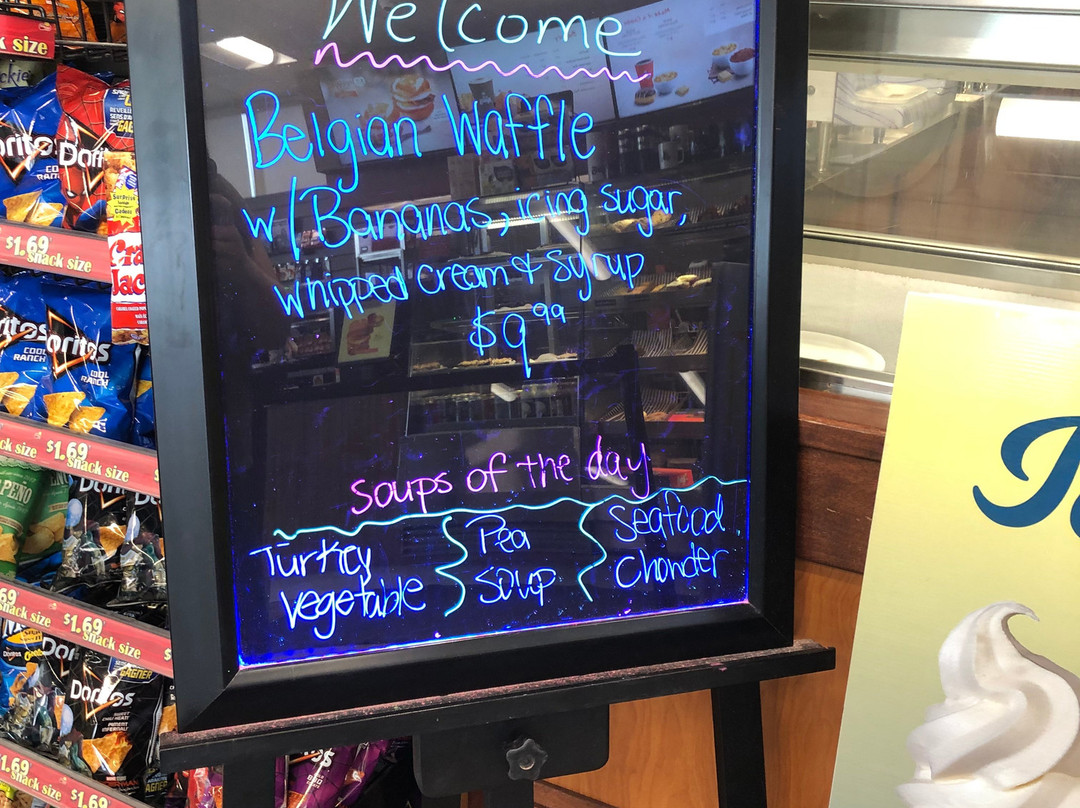 Welcome
Belgian Waffle
w/Bananas, icing sugar,
whipped cream & syrup
$9.99
soups of the day
Turkey
vegetable
Pea
Soup
Seafood
Chowder
k size
$1.69
snack size
Doritos
COOL
RANCH
ck size
$1.69
snack size
$1.69
snack size
Doritos
$1.69
snack size
$1.69